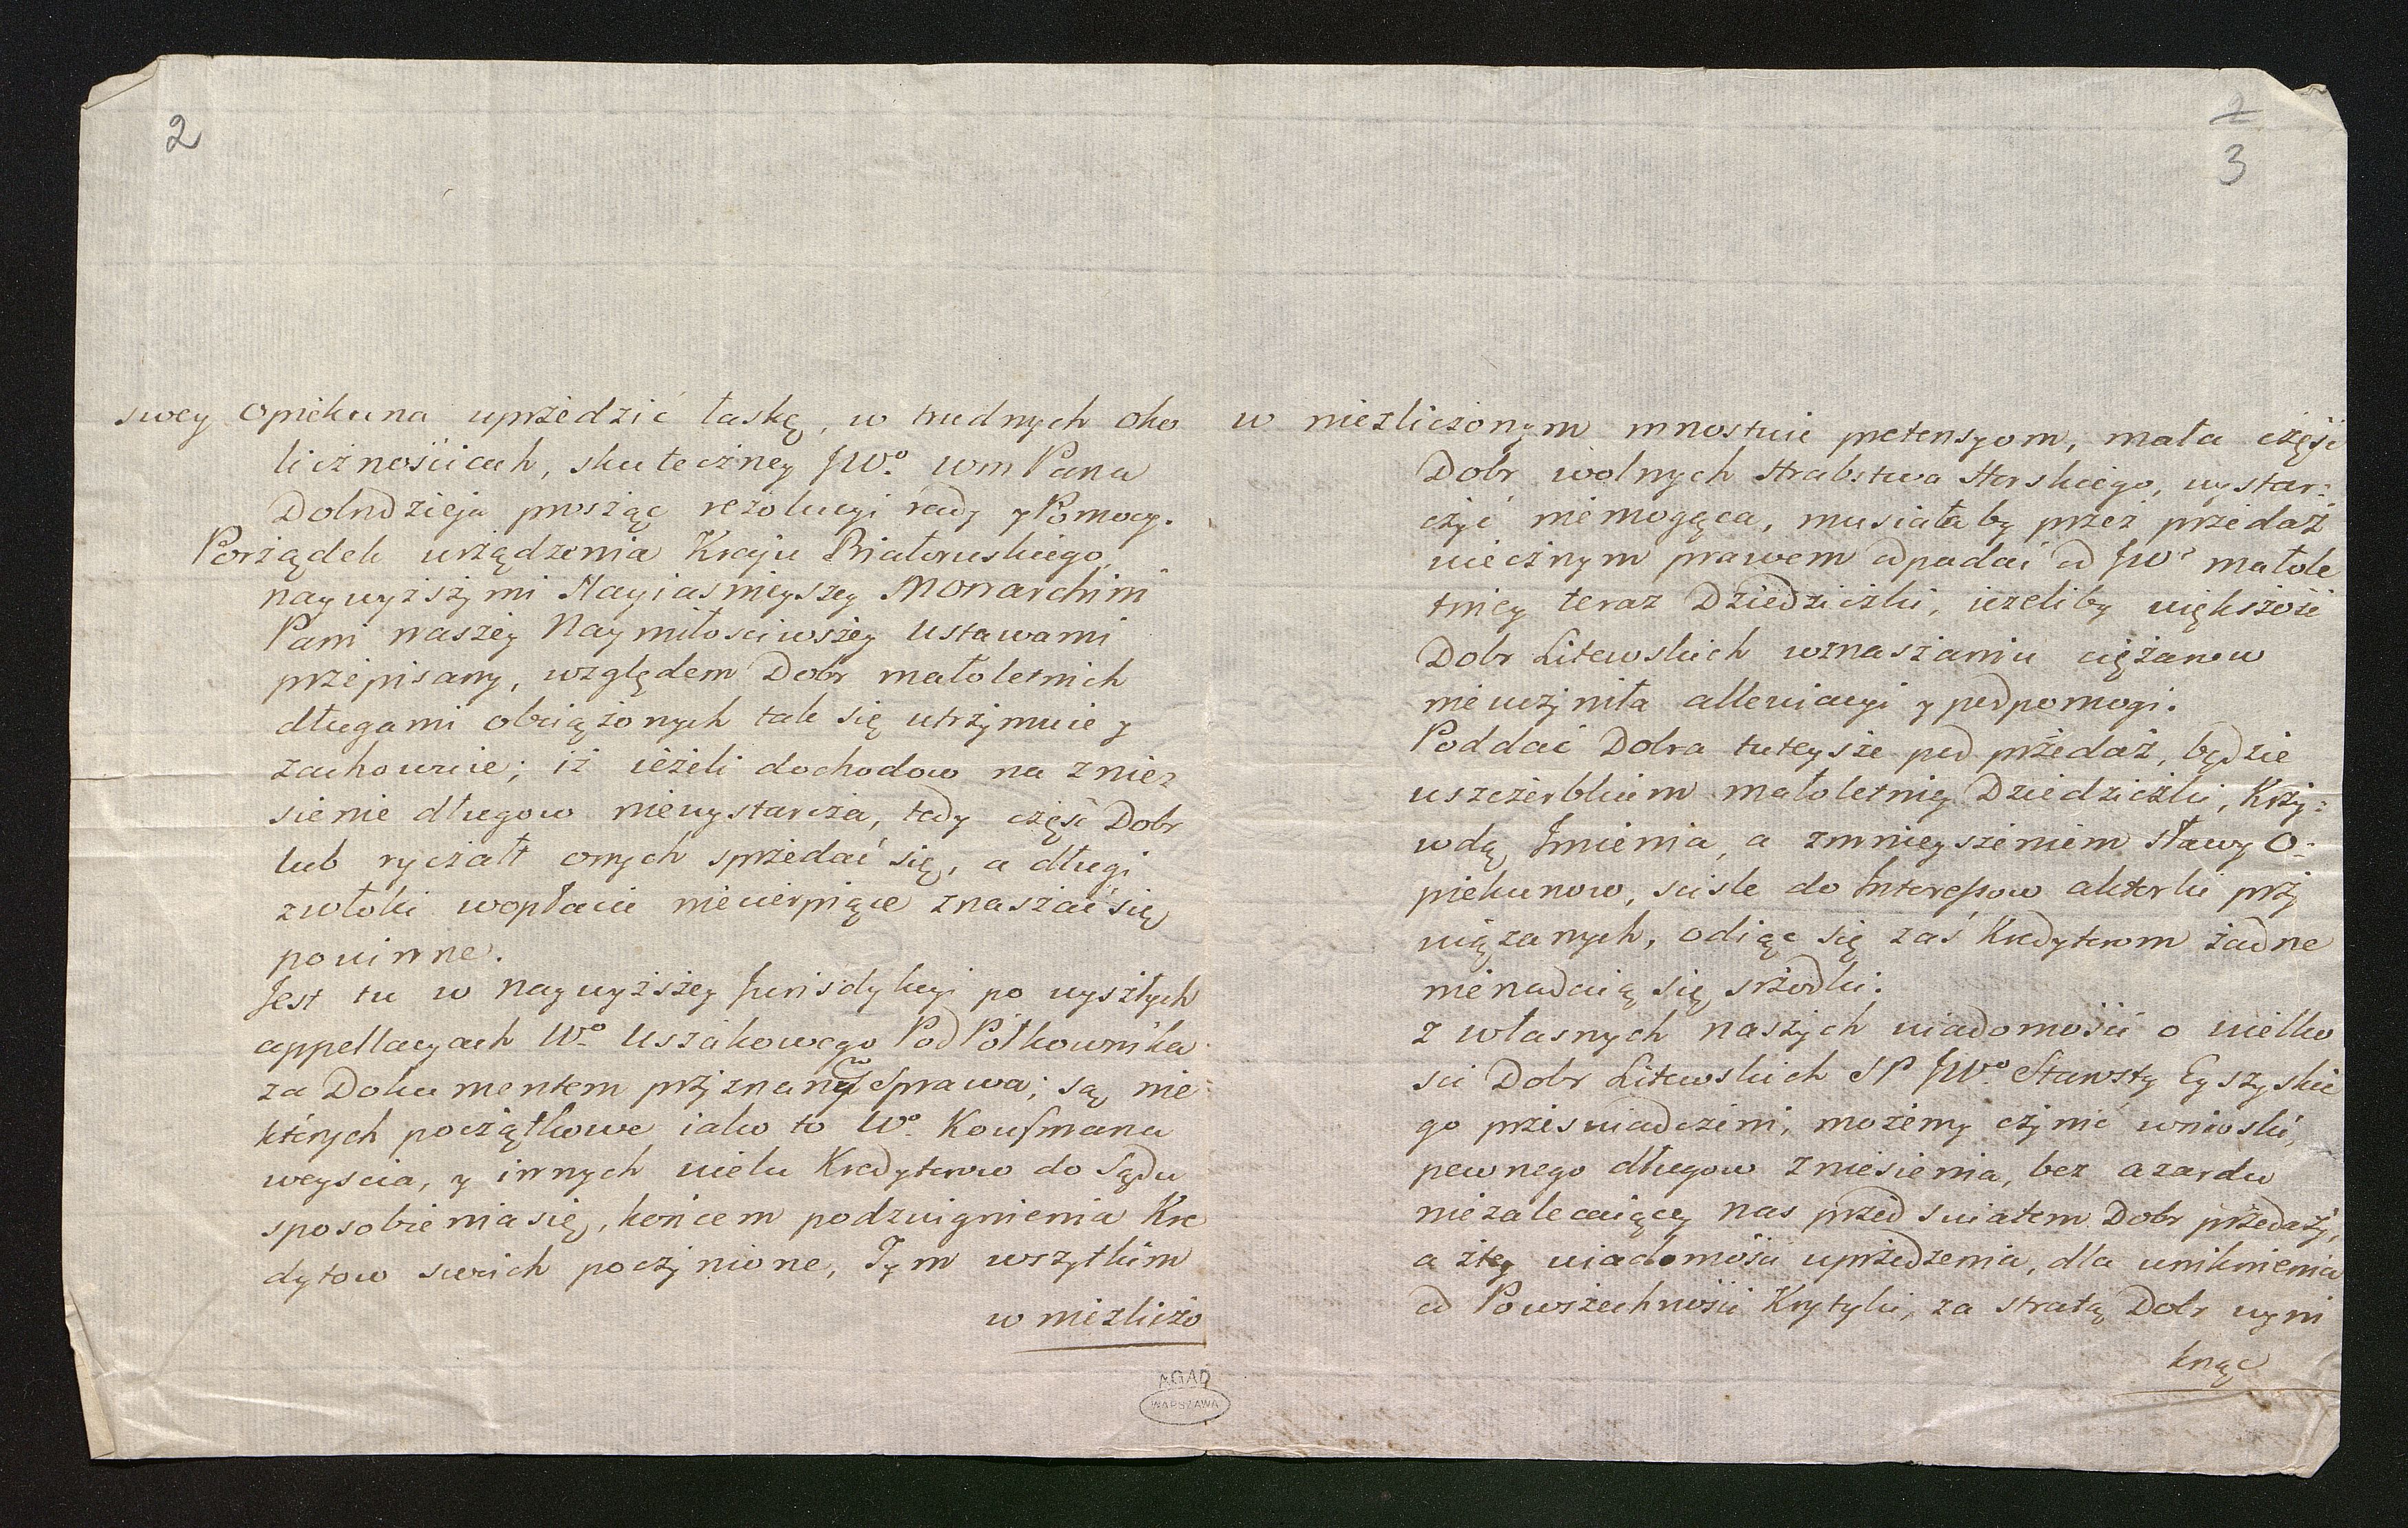 2
swey Opiekuna uprzedzić łaskę, w trudnych oko
licznościach, skuteczney JWo. wm Pana
Dobrodzieja prosząc rezolucyi rady y Pomocy.
Porządek urządzenia Kraju Białoruskiego,
naywyższymi Nayiasnieyszey Monarchini
Pani naszey Naymiłosciwszey Ustawami
przepisany, względem Dobr małoletnich
długami obciążonych tak się utrzymuie y
zachowuie; iż ieżeli dochodow na znie-
sienie długow niewystarcza, tedy część Dobr
lub ryczałt onych sprzedać się, a długi
zwłoki wopłacie niecierpiące znaszać się
powinne.
Jest tu w naywyższey Jurisdykcyi po wyszłych
appellacyach Wo. Uszakowego PodPółkownika
za Dokumentem przyznanym Sprawa; są nie-
których początkowe iako to Wo. Koufmana
weyscia, y innych wielu Kredytorow do Sądu
sposobienia się, końcem podzwignienia Kre
dytow swoich poczynione, Tym wszytkim
w niezliczo
AGAD
WARSZAWA
2
3
w niezliczonym mnostwie pretensyom, mała część
Dobr wolnych Hrabstwa Horskiego, wystar-
czyć niemogąca, musiałaby przez przedaż
wiecznym prawem odpadać od JWo małole
tniey teraz Dziedziczki, ieżeliby większość
Dobr Litewskich wznaszaniu ciężarow
nieuczyniła allewiacyi y podpomogi.
Poddać Dobra tuteysze pod przedaż, będzie
uszczerbkiem małoletniey Dziedziczki, Krzy-
wdą Imienia, a zmnieyszeniem sławy O-
piekunow, scisle do Interessow aktorki przy
wiązanych, odiąc się zaś Kredytorom żadne
nienadaią się srzodki.
z własnych naszych wiadomości o wielko
sci Dobr Litewskich SP JWo. Starosty Eyszyskie
go przeswiadczeni, możemy czynić wnioski,
pewnego długow zniesienia, bez azardu
niezalecaiącey nas przed swiatem Dobr przedaży,
a ztey wiadomości uprzedzenia, dla uniknienia
od Powszechności Krytyki, za stratą Dobr wyni
knąc